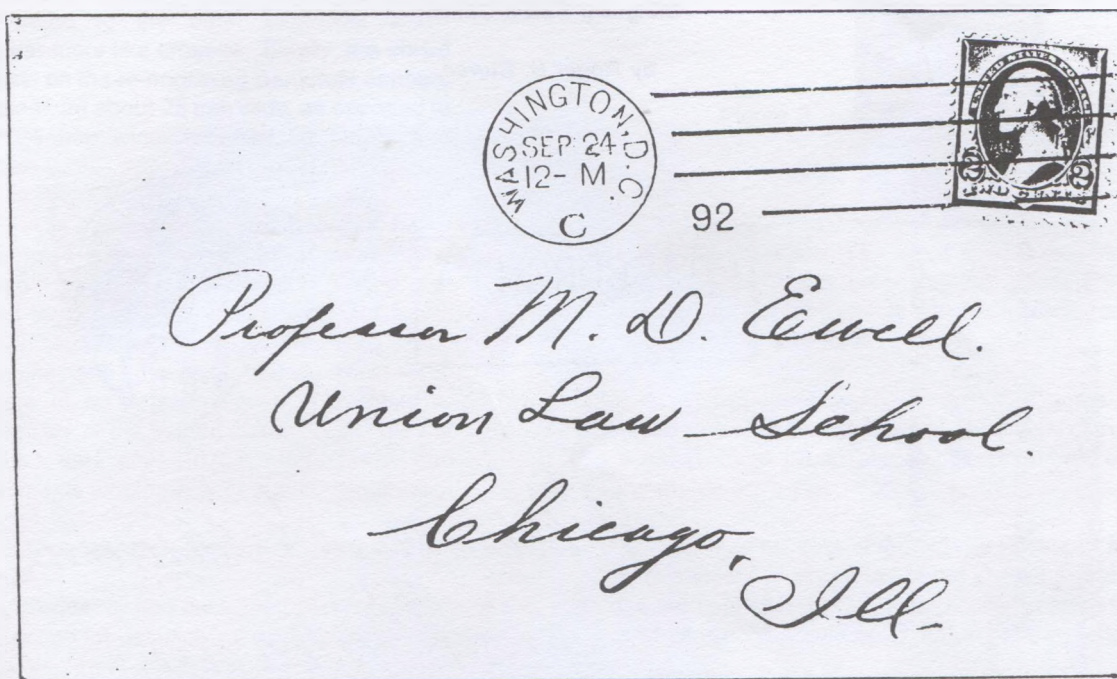 WASHINGTON, D.C.
SEP 24
12- M
C
92
UNITED STATES POSTAGE
2 2
Professor M. D. Ewell.
Union Law School.
Chicago,
Ill.